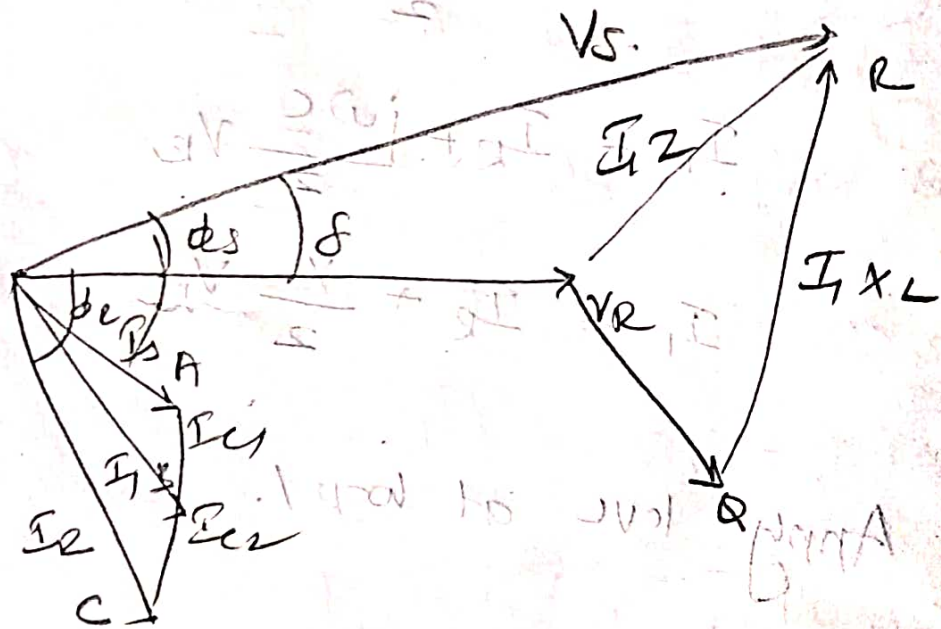 Vs.
R
I1Z
ϕs
δ
I1XL
VR
ϕR
Is
A
Ic1
I1
B
Ic2
IR
Q
C